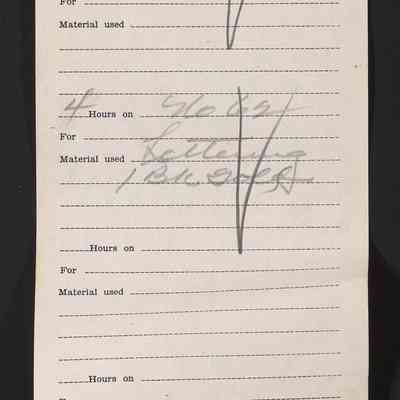 For
Material used
4 Hours on No 621
For Lettering
Material used
1 Bk. Gold
Hours on
For
Material used
Hours on